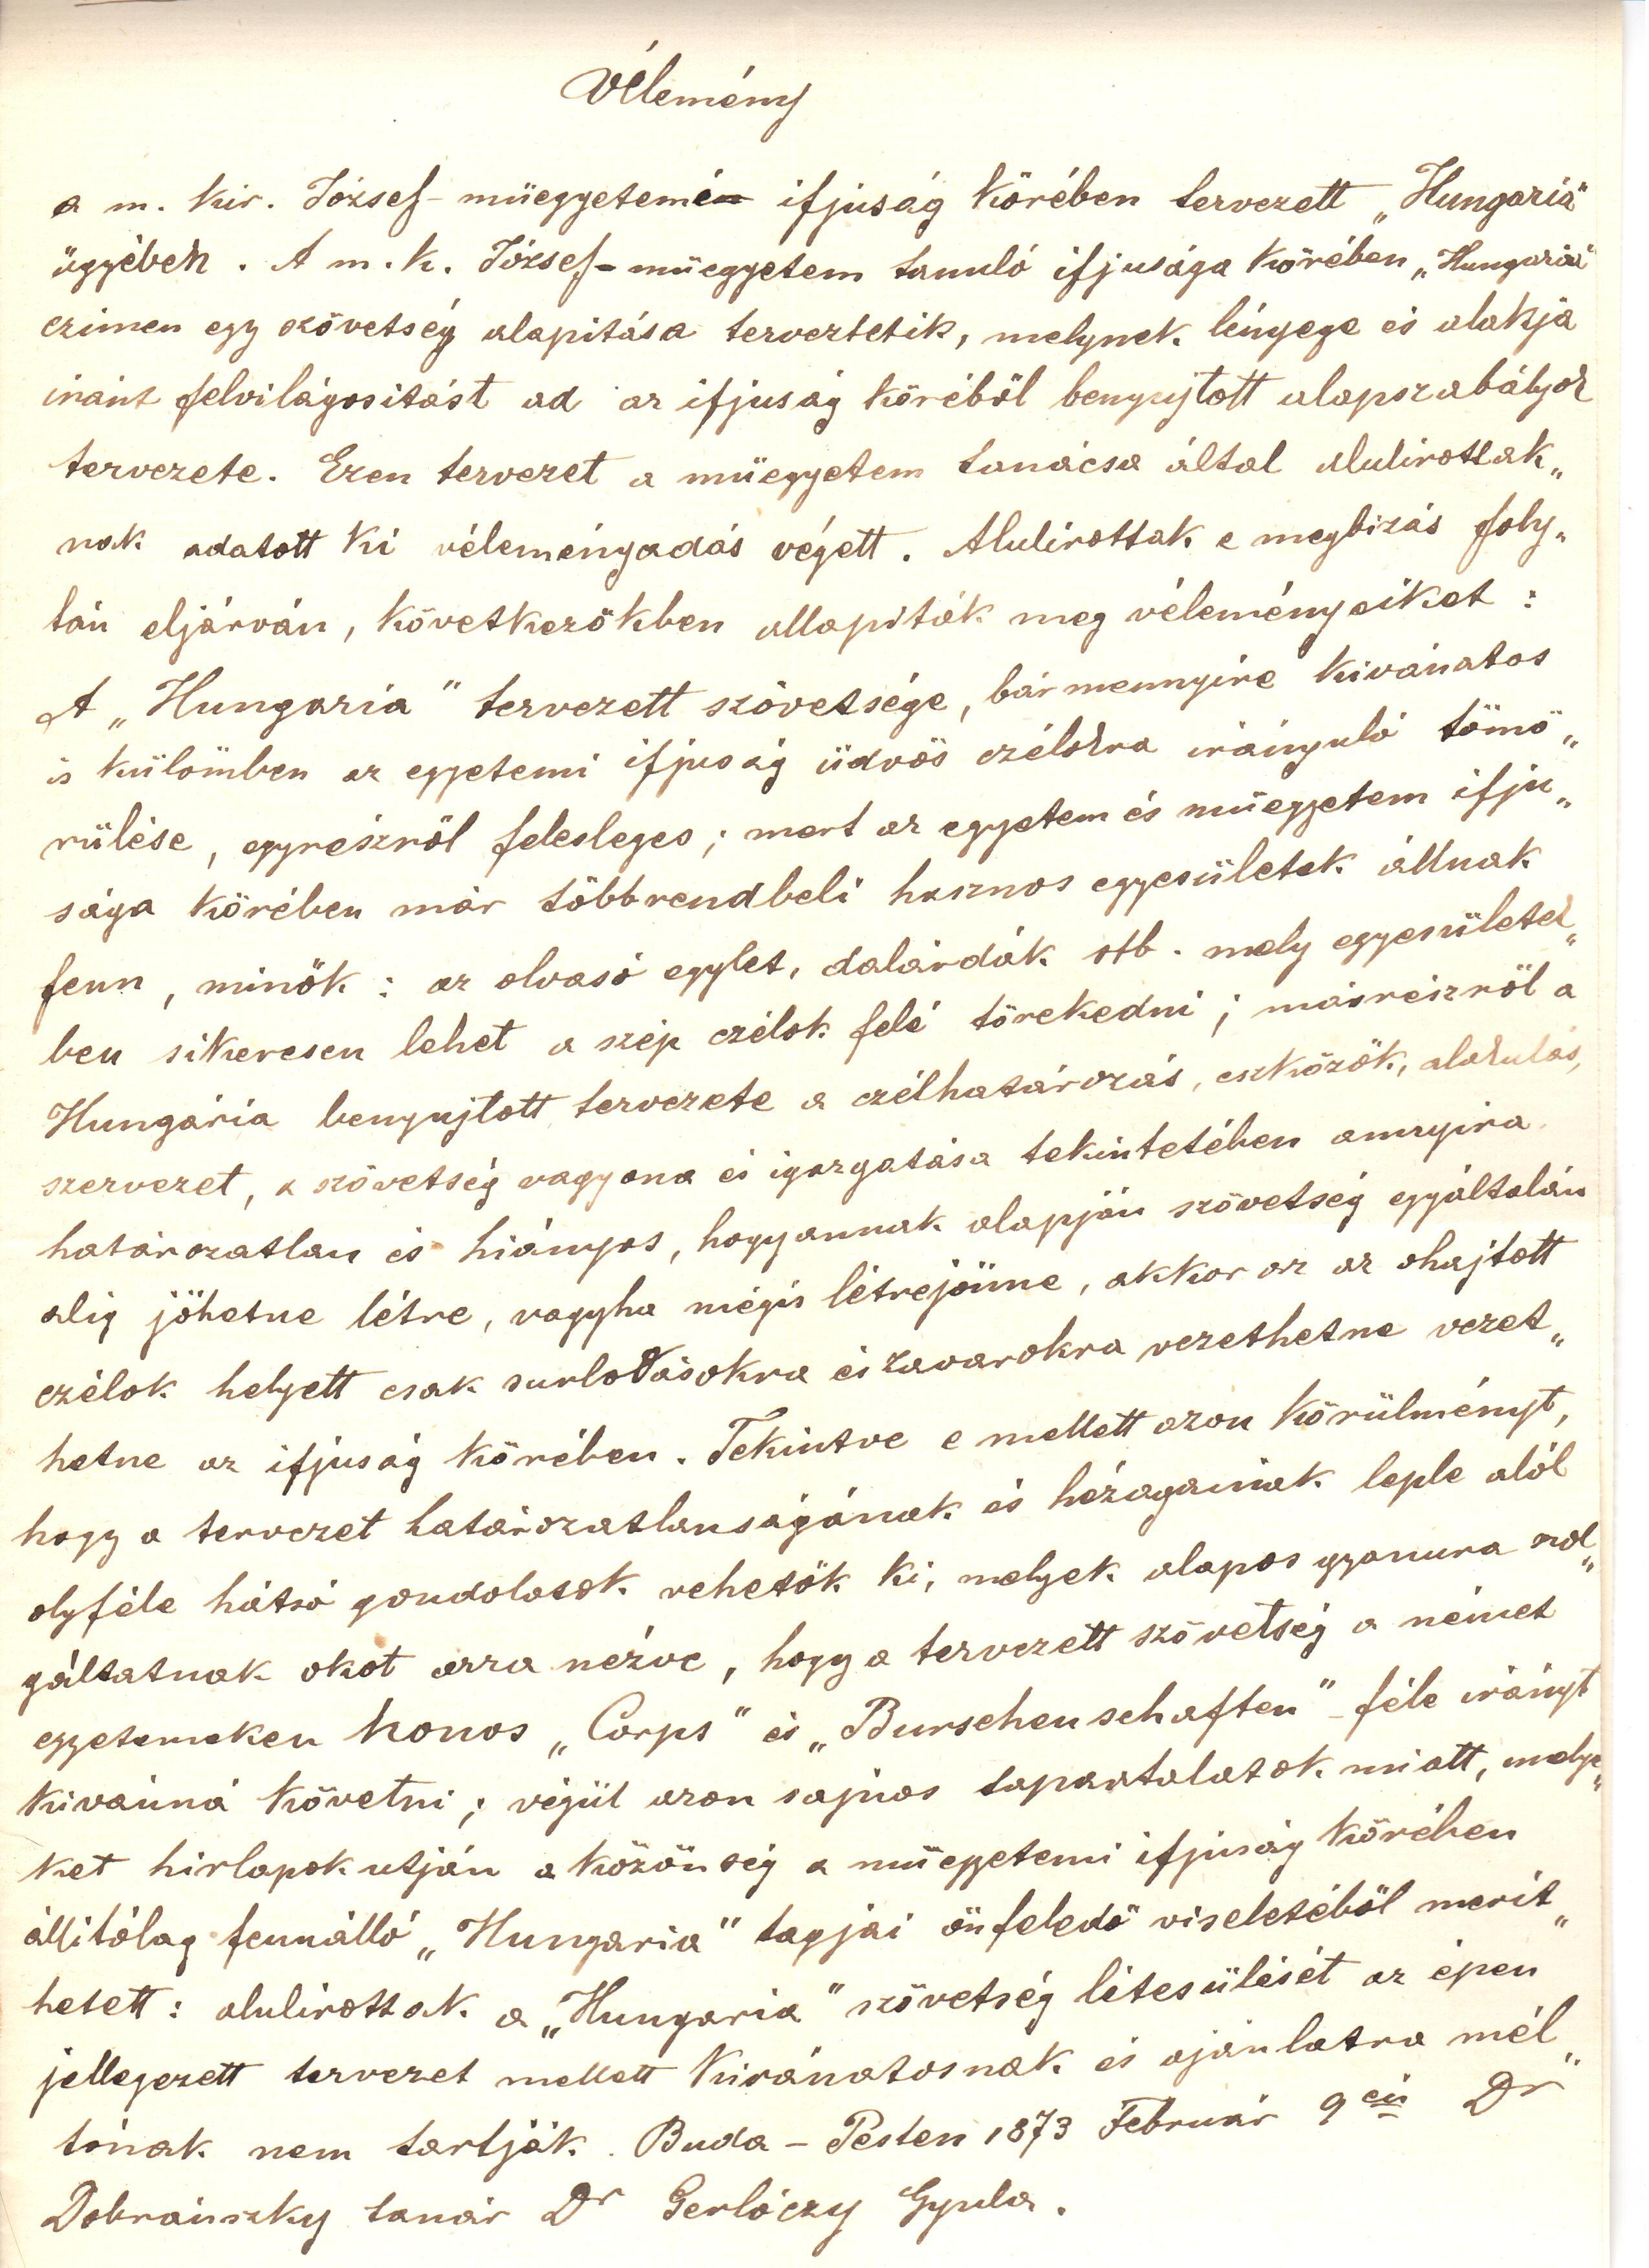 Vélemény
a m. kir. József-müegyetemi ifjuság körében tervezett „Hungaria"
ügyében. A m. k. József-müegyetem tanuló ifjusága körében „Hungaria"
czimen egy szövetség alapitása terveztetik, melynek lényege és alakja
iránt felvilágositást ad az ifjuság köréböl benyujtott alapszabályok
tervezete. Ezen tervezet a müegyetem tanácsa által alulirottak„
nak adatott ki véleményadás végett. Alulirottak e megbizás foly„
tán eljárván, következökben allapiták meg véleményeiket :
A „Hungaria" tervezett szövetsége, bármennyire kivánatos
is külömben az egyetemi ifjuság üdvös czélokra irányuló tömö„
rülése, egyrészröl felesleges; mert az egyetem és müegyetem ifju„
sága körében már többrendbeli hasznos egyesületek állnak
fenn, minök : az olvasó egylet, dalárdák stb. mely egyesületek„
ben sikeresen lehet a szép czélok felé törekedni; másrészröl a
Hungária benyujtott tervezete a czélhatározás, eszközök, alakulás,
szervezet, a szövetség vagyona és igazgatása tekintetében annyira
határozatlan és hiányos, hogy annak alapján szövetség egyáltalán
alig jöhetne létre, vagyha mégis létrejönne, akkor az az ohajtott
czélok helyett csak surlodásokra és zavarokra vezethetne vezet„
hetne az ifjuság körében. Tekintve e mellett azon körülményt,
hogy a tervezet határozatlanságának és hézagainak leple alól
olyféle hátsó gondolatok vehetök ki, melyek alapos gyanura szol„
gáltatnak okot arra nézve, hogy a tervezett szövetség a német
egyetemeken honos „Corps" és „Burschenschaften"-féle irányt
kivánná követni; végül azon sajnos tapasztalatok miatt, melye„
ket hirlapok utján a közönség a müegyetemi ifjuság körében
állitólag fennálló „Hungaria" tagjai önfeledö viseletéböl merit„
hetett : alulirottak a „Hungaria" szövetség létesülését az épen
jellegezett tervezet mellett kivánatosnak és ajánlatra mél„
tónak nem tartják. Buda-Pesten 1873 Február 9én Dr
Dobránszky tanár Dr Gerlóczy Gyula.